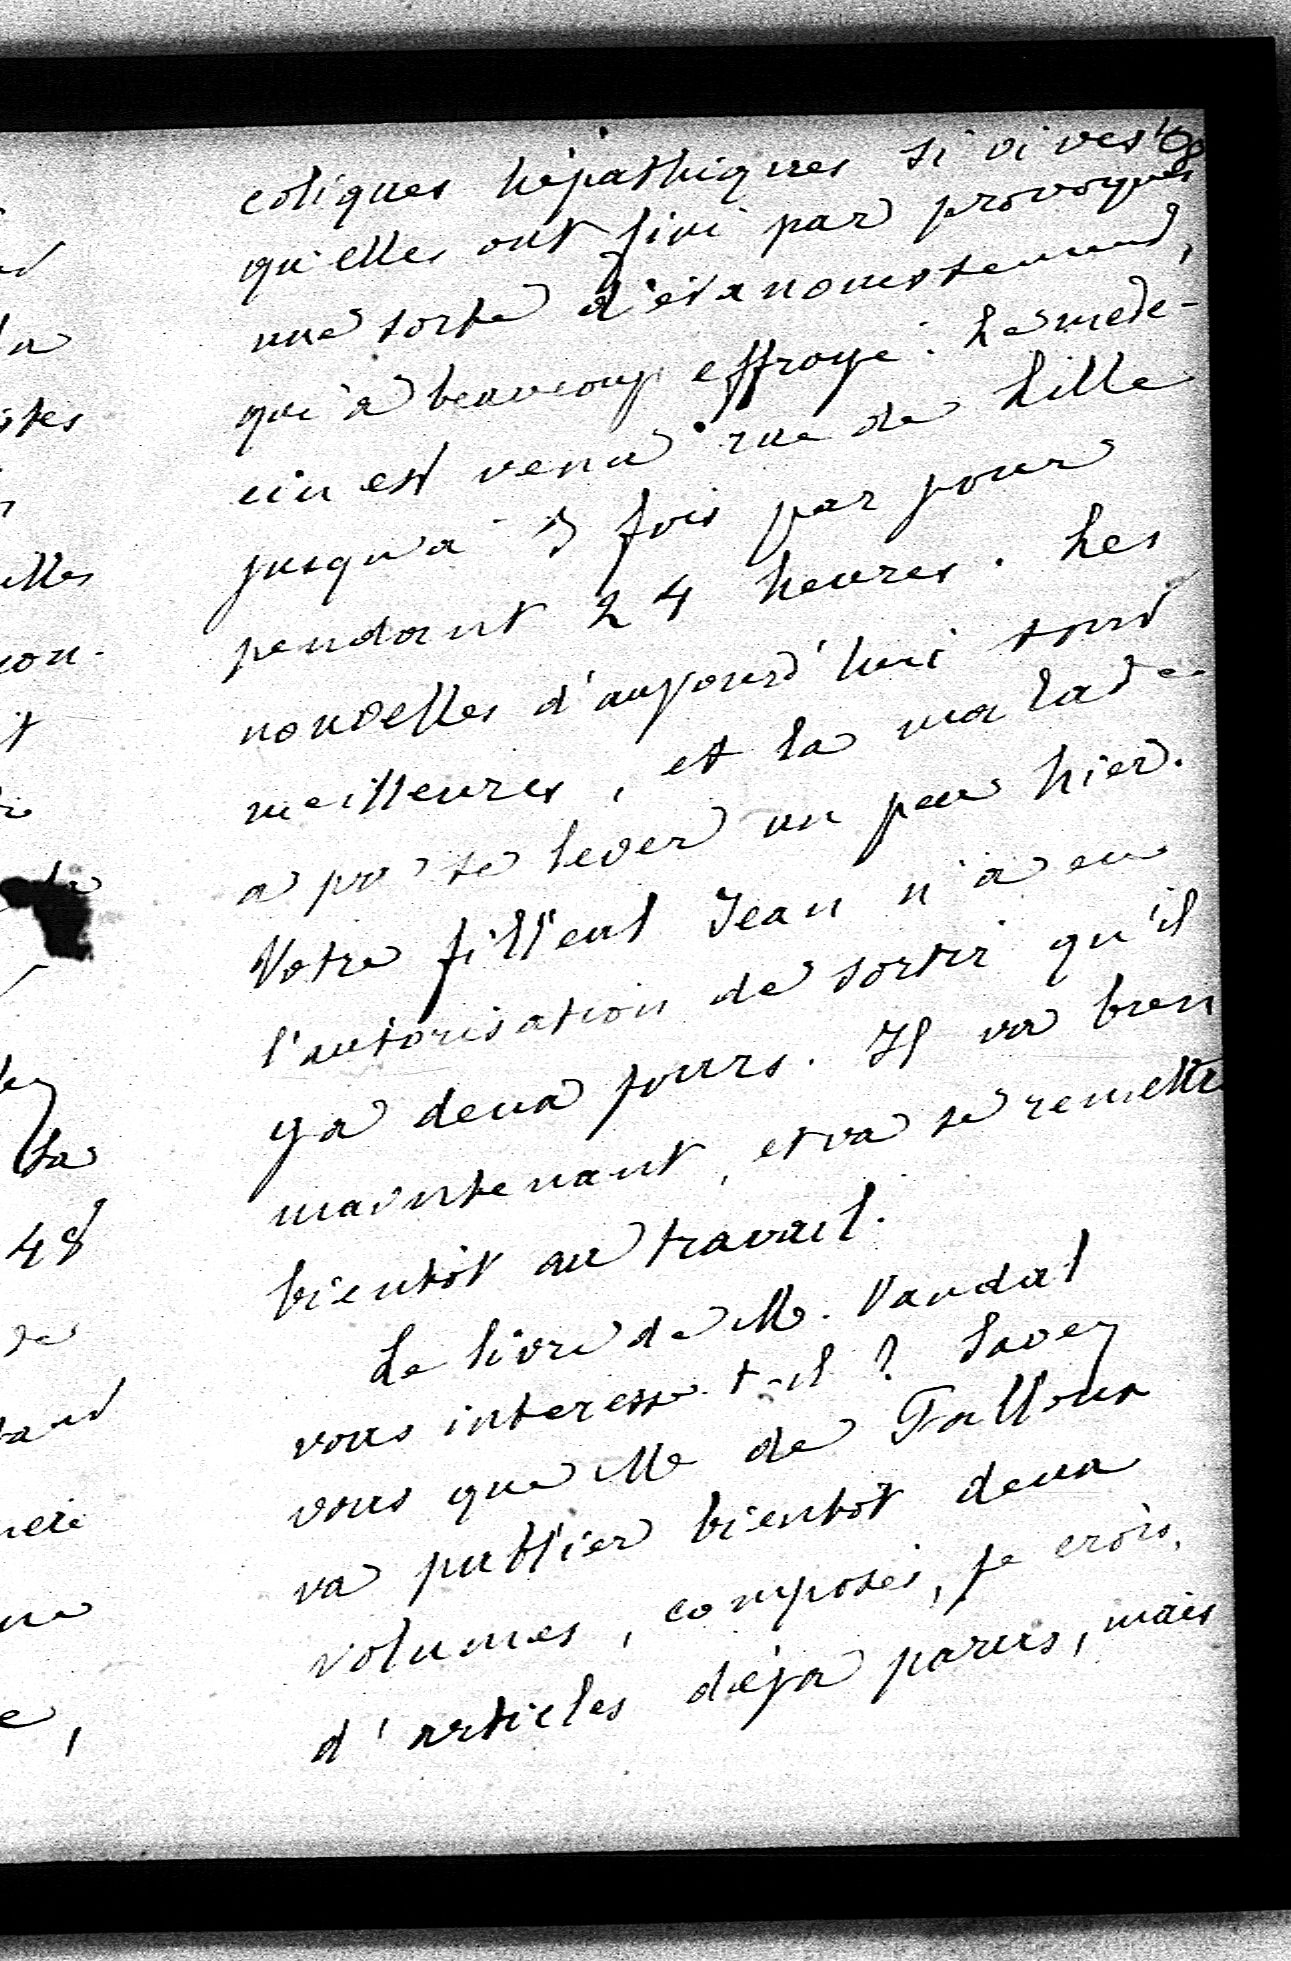 coliques hépathiques si vives
qu'elles ont fini par provoquer
une sorte d'évanouissement,
qui a beaucoup effrayé. Le mede-
cin est venu rue de Lille
jusqu'à 3 fois par jour
pendant 24 heures. Les
nouvelles d'aujourd'hui sont
meilleures, et la malade
a pu se lever un peu hier.
Votre filleul Jean n'a eu
l'autorisation de sortir qu'il
y a deux jours. Il va bien
maintenant, et va se remettre
bientôt au travail.
Le livre de M. Vandal
vous interesse-t-il ? Savez
vous que M de Falloux
va publier bientôt deux
volumes, composés, je crois,
d'articles déjà parus, mais